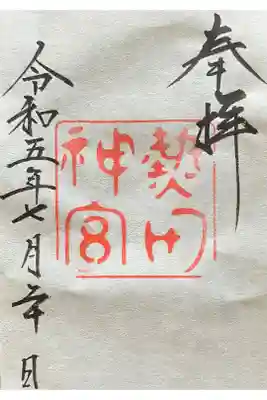 奉拝
熱田
神宮
令和五年七月二十日